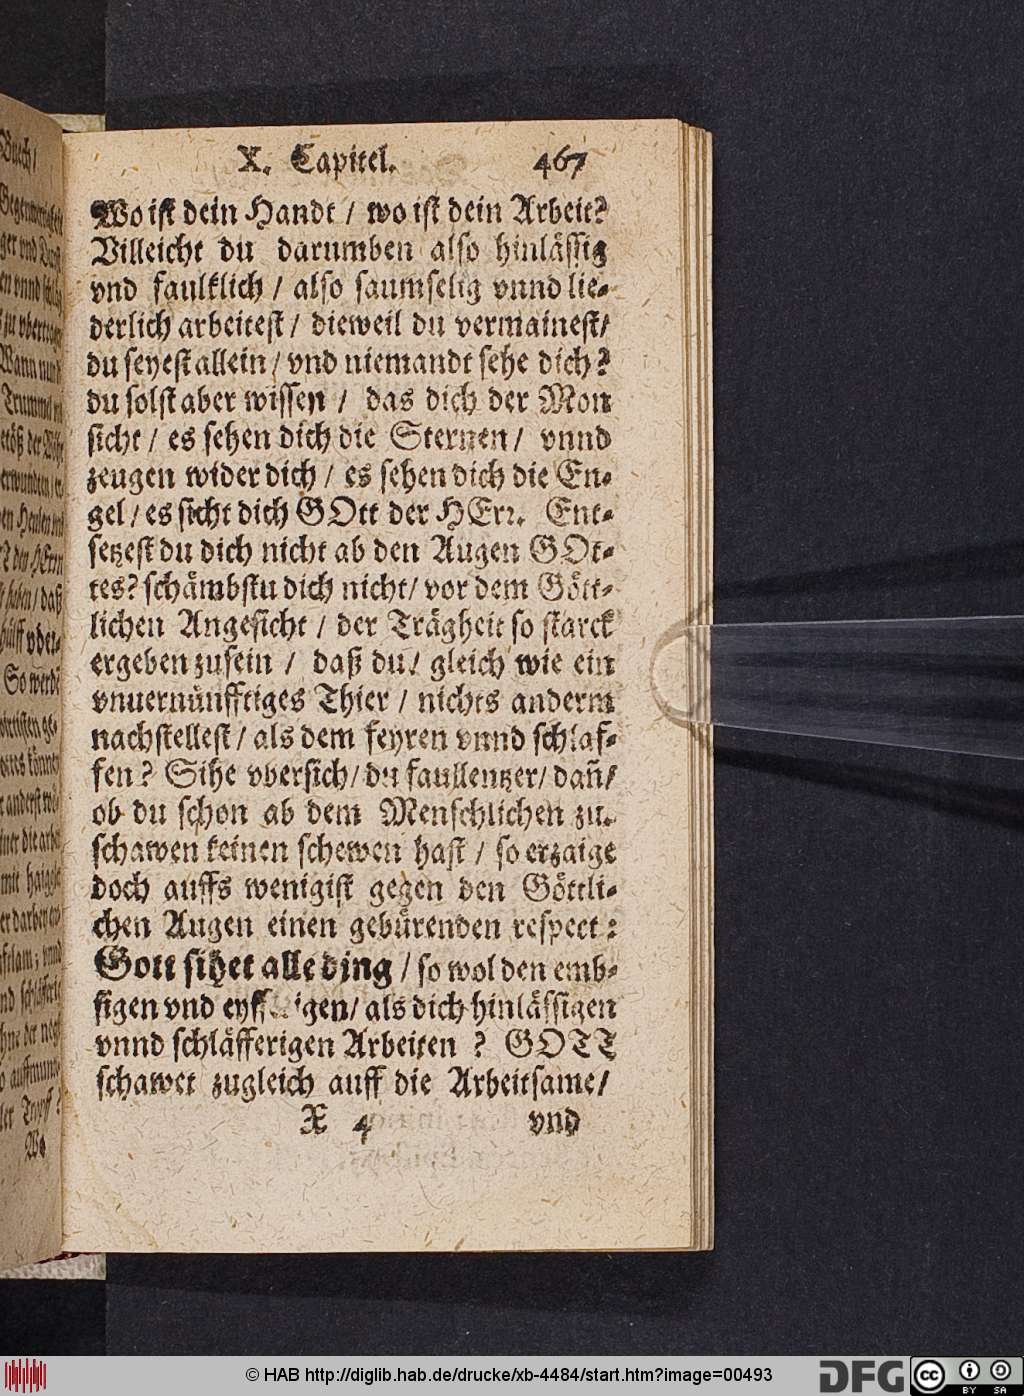 X. Capitel. 467
Wo iſt dein Handt / wo iſt dein Arbeit?
Villeicht du darumben alſo hinläſſig
vnd faulklich / alſo ſaumſelig vnnd lie-
derlich arbeiteſt / dieweil du vermaineſt /
du ſeyeſt allein / vnd niemandt ſehe dich?
du ſolſt aber wiſſen / das dich der Mon
ſicht / es ſehen dich die Sternen / vnnd
zeugen wider dich / es ſehen dich die En-
gel / es ſicht dich GOtt der HErr. Ent-
ſetzeſt du dich nicht ab den Augen GOt-
tes? ſchämbſtu dich nicht / vor dem Gött-
lichen Angeſicht / der Trägheit ſo ſtarck
ergeben zuſein / daß du / gleich wie ein
vnuernünfftiges Thier / nichts anderm
nachſtelleſt / als dem feyren vnnd ſchlaf-
fen? Sihe vberſich / du faullentzer / dañ /
ob du ſchon ab dem Menſchlichen zu-
ſchawen keinen ſchewen haſt / ſo erzaige
doch auffs wenigiſt gegen den Göttli-
chen Augen einen gebürenden reſpect:
Gott ſihet alle ding / ſo wol den emb-
ſigen vnd / als dich hinläſſigen
vnnd ſchläfferigen Arbeiten ? GOTT
ſchawet zugleich auff die Arbeitſame /
X 4 vnd
Buech /
Wo
© HAB http://diglib.hab.de/drucke/xb-4484/start.htm?image=00493
DFG
cc
BY SA